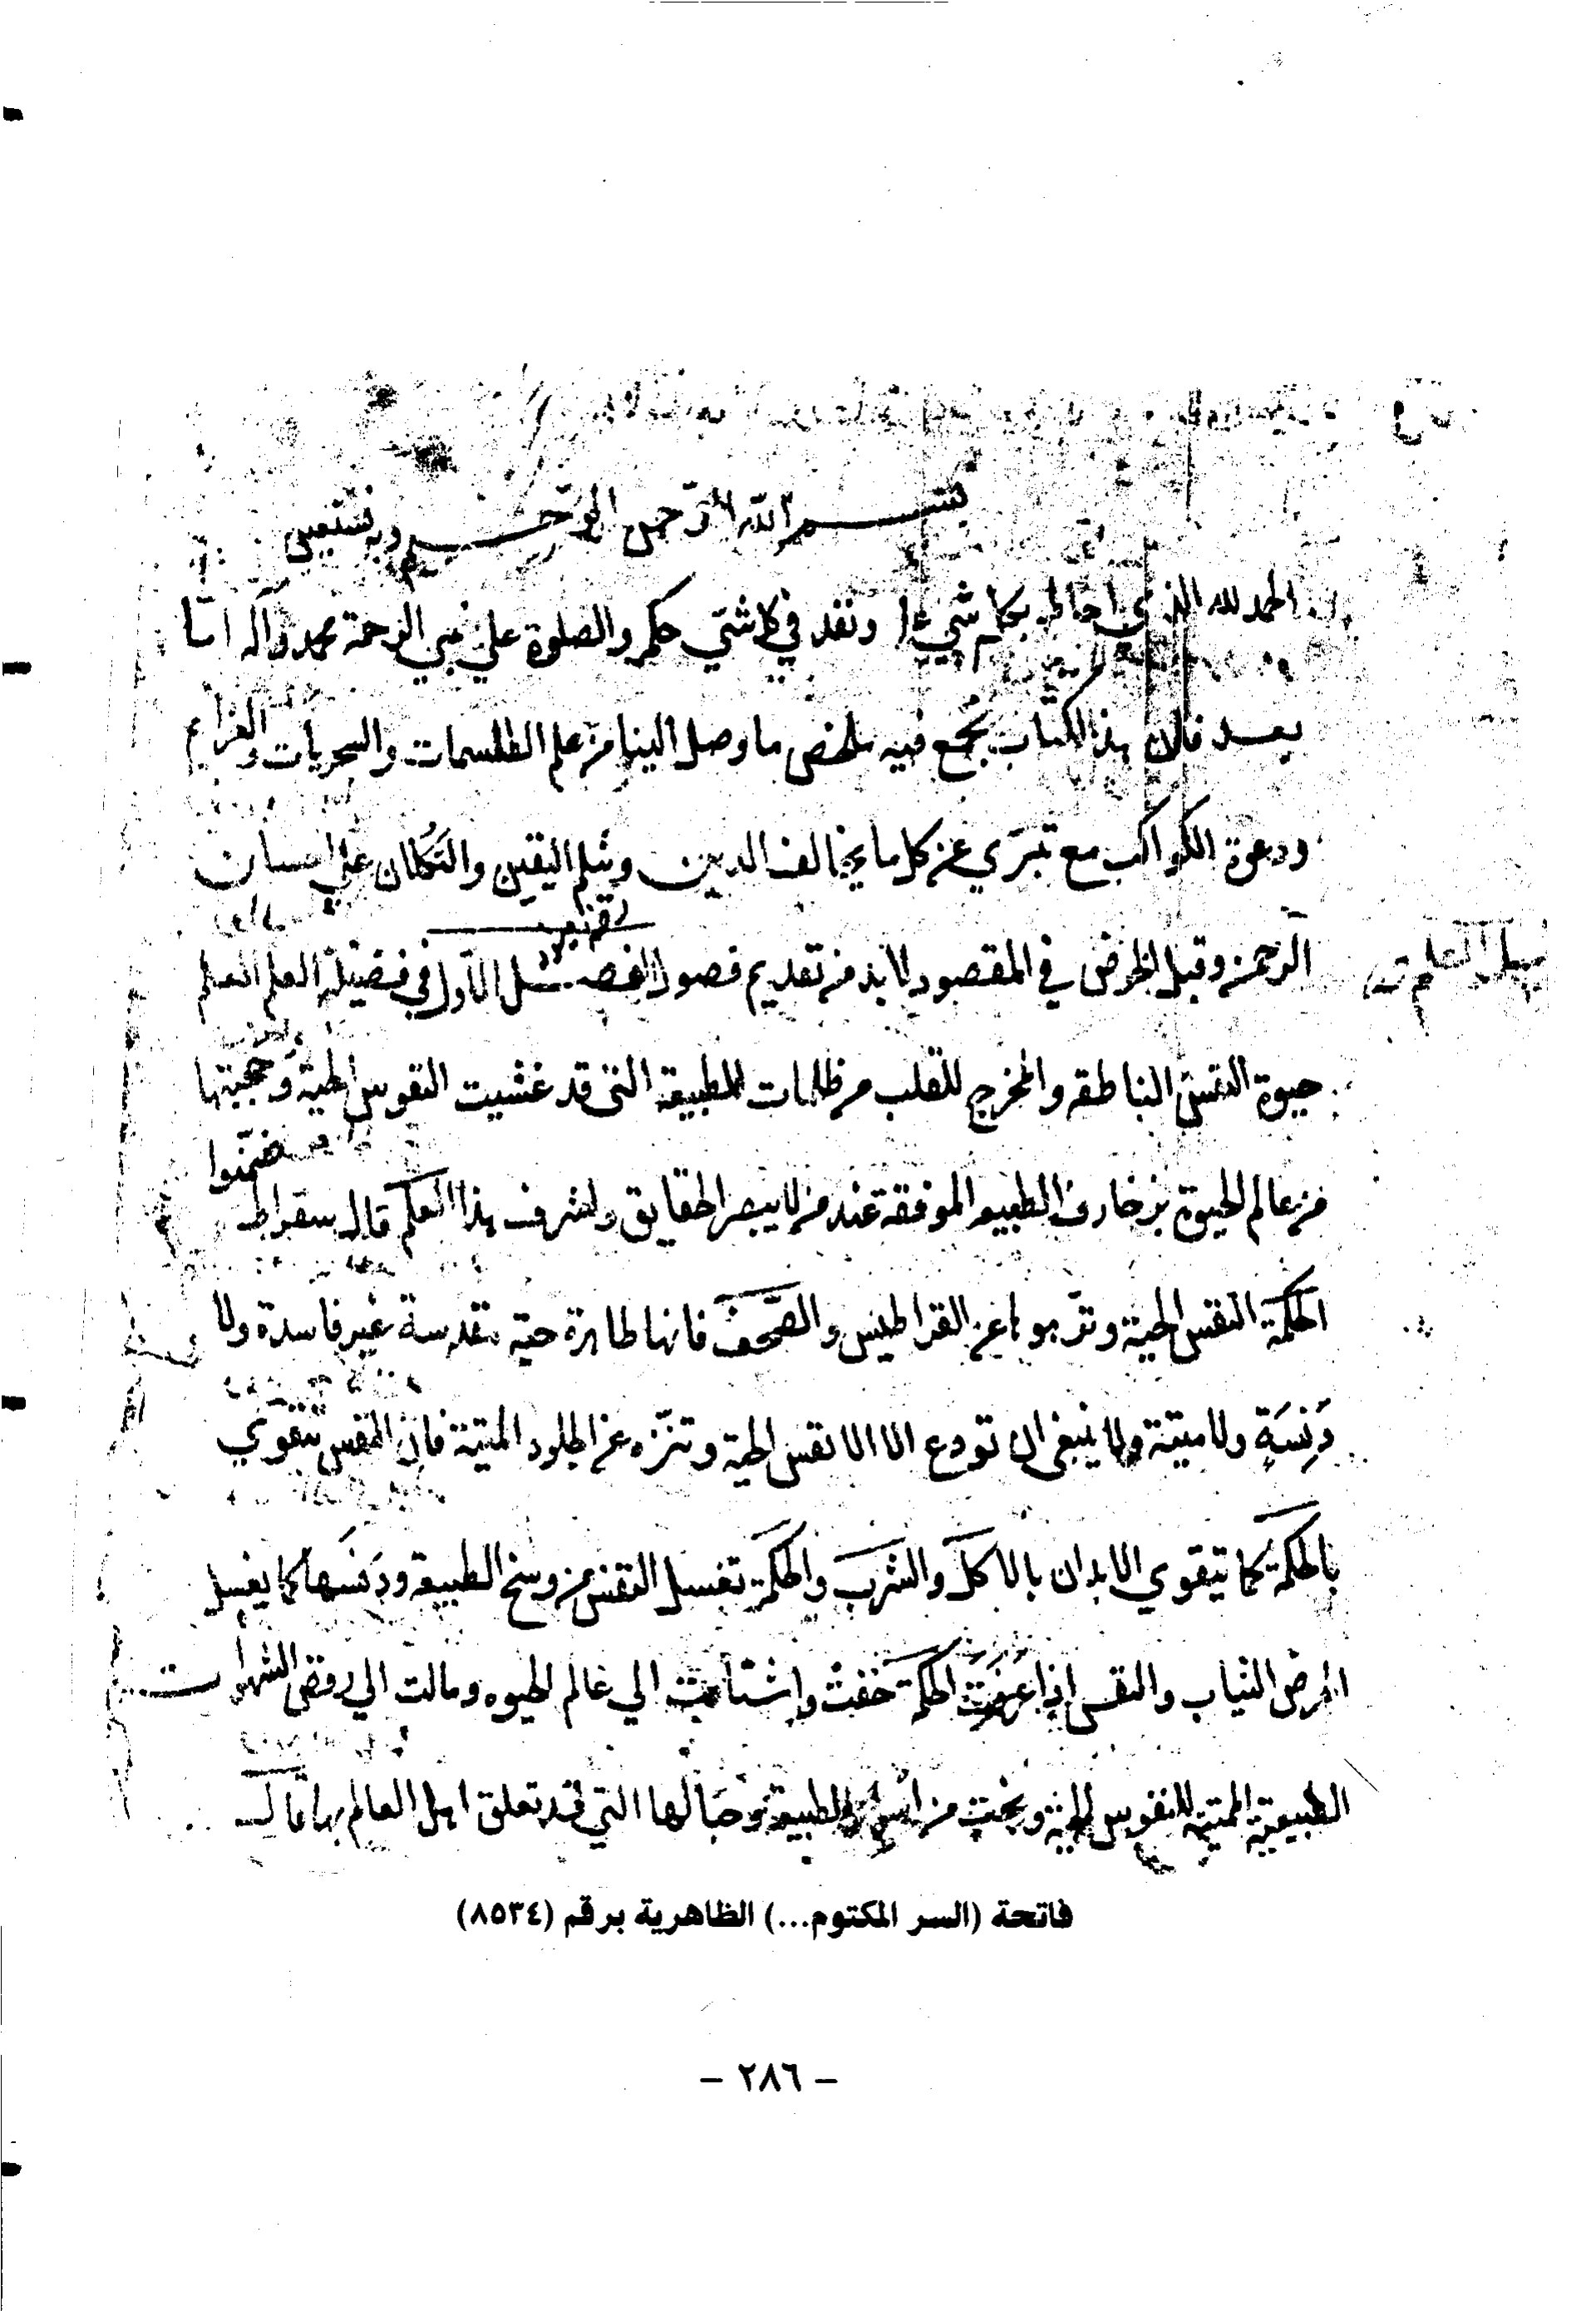 بسم الله الرّحمن الرّحيم وبه نستعين
الحمد لله الذي احاط بكل شيء ونفد في كل شيء حكمه والصلوة علي نبي الرحمة محمد وآله امّا
بعد فان هذا الكتاب يُجمع فيه ملخص ما وصل الينا من علم الطلسمات والسحريات والعزايم
ودعوة الكواكب مع تبرّي عن كل ما يخالف الدين وثلم اليقين والتُكلان علي احسان
الرحمن وقبل الخوض في المقصود لابد من تقديم فصول الفصل الاول في فضيلة العلم العلم
حيوة النفس الناطقه والمخرج للقلب من ظلمات الطبيعة التي قد غشيت النفوس الحية وحجبتها
من عالم الحيوة بزخارف الطبيعه الموفقة عند من لا يبصر الحقايق ولشرف هذا العلم قال سقراط ضمّنوا
الحكمة النفس الحية ونزّهوها عن القراطيس والصّحف فانها طاهرة حيّة مقدسة غير فاسدة ولا
دَنِسَةٍ ولا ميتة ولا ينبغي ان تودع الا الانفس الحية وتنزّه عن الجلود الميتة فان النفس تتقوي
بالحكمة كما تتقوي الابدان بالاكل والشرب والحكمة تغسل النفس من وسخ الطبيعه ودَنَسها كما يغسل
الحرض الثياب والنفس اذا عرفت الحكمة خفت واشتاقت الي عالم الحيوه ومالت الي رفض الشهوات
الطبيعية المميتة للنفوس الحية ونجت من اسر الطبيعة وحبالها التي قد تعلق اهل العالم بها قال
فاتحة (السر المكتوم...) الظاهرية برقم (٨٥٣٤)
– ٢٨٦ –